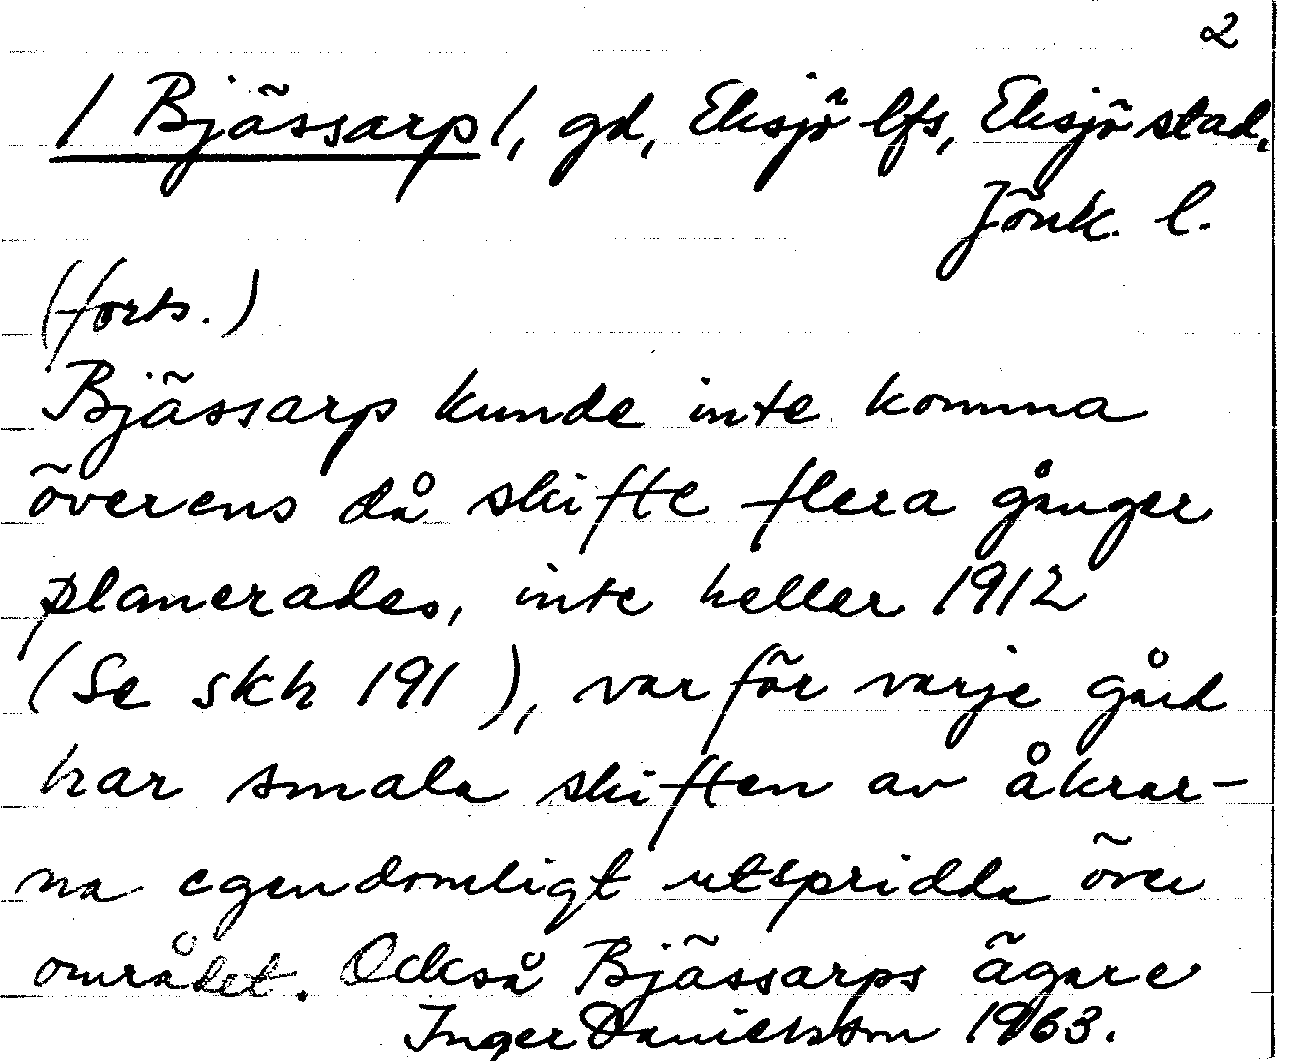 2
/ Bjässarp /, gd, Eksjö lfs, Eksjö stad,
Jönk. l.
(forts.)
Bjässarp kunde inte komma
överens då skifte flera gånger
planerades, inte heller 1912
(Se skh 191 ), varför varje gård
har smala skiften av åkrar-
na egendomligt utspridda över
området. Också Bjässarps ägare
Inger Danielsson 1963.